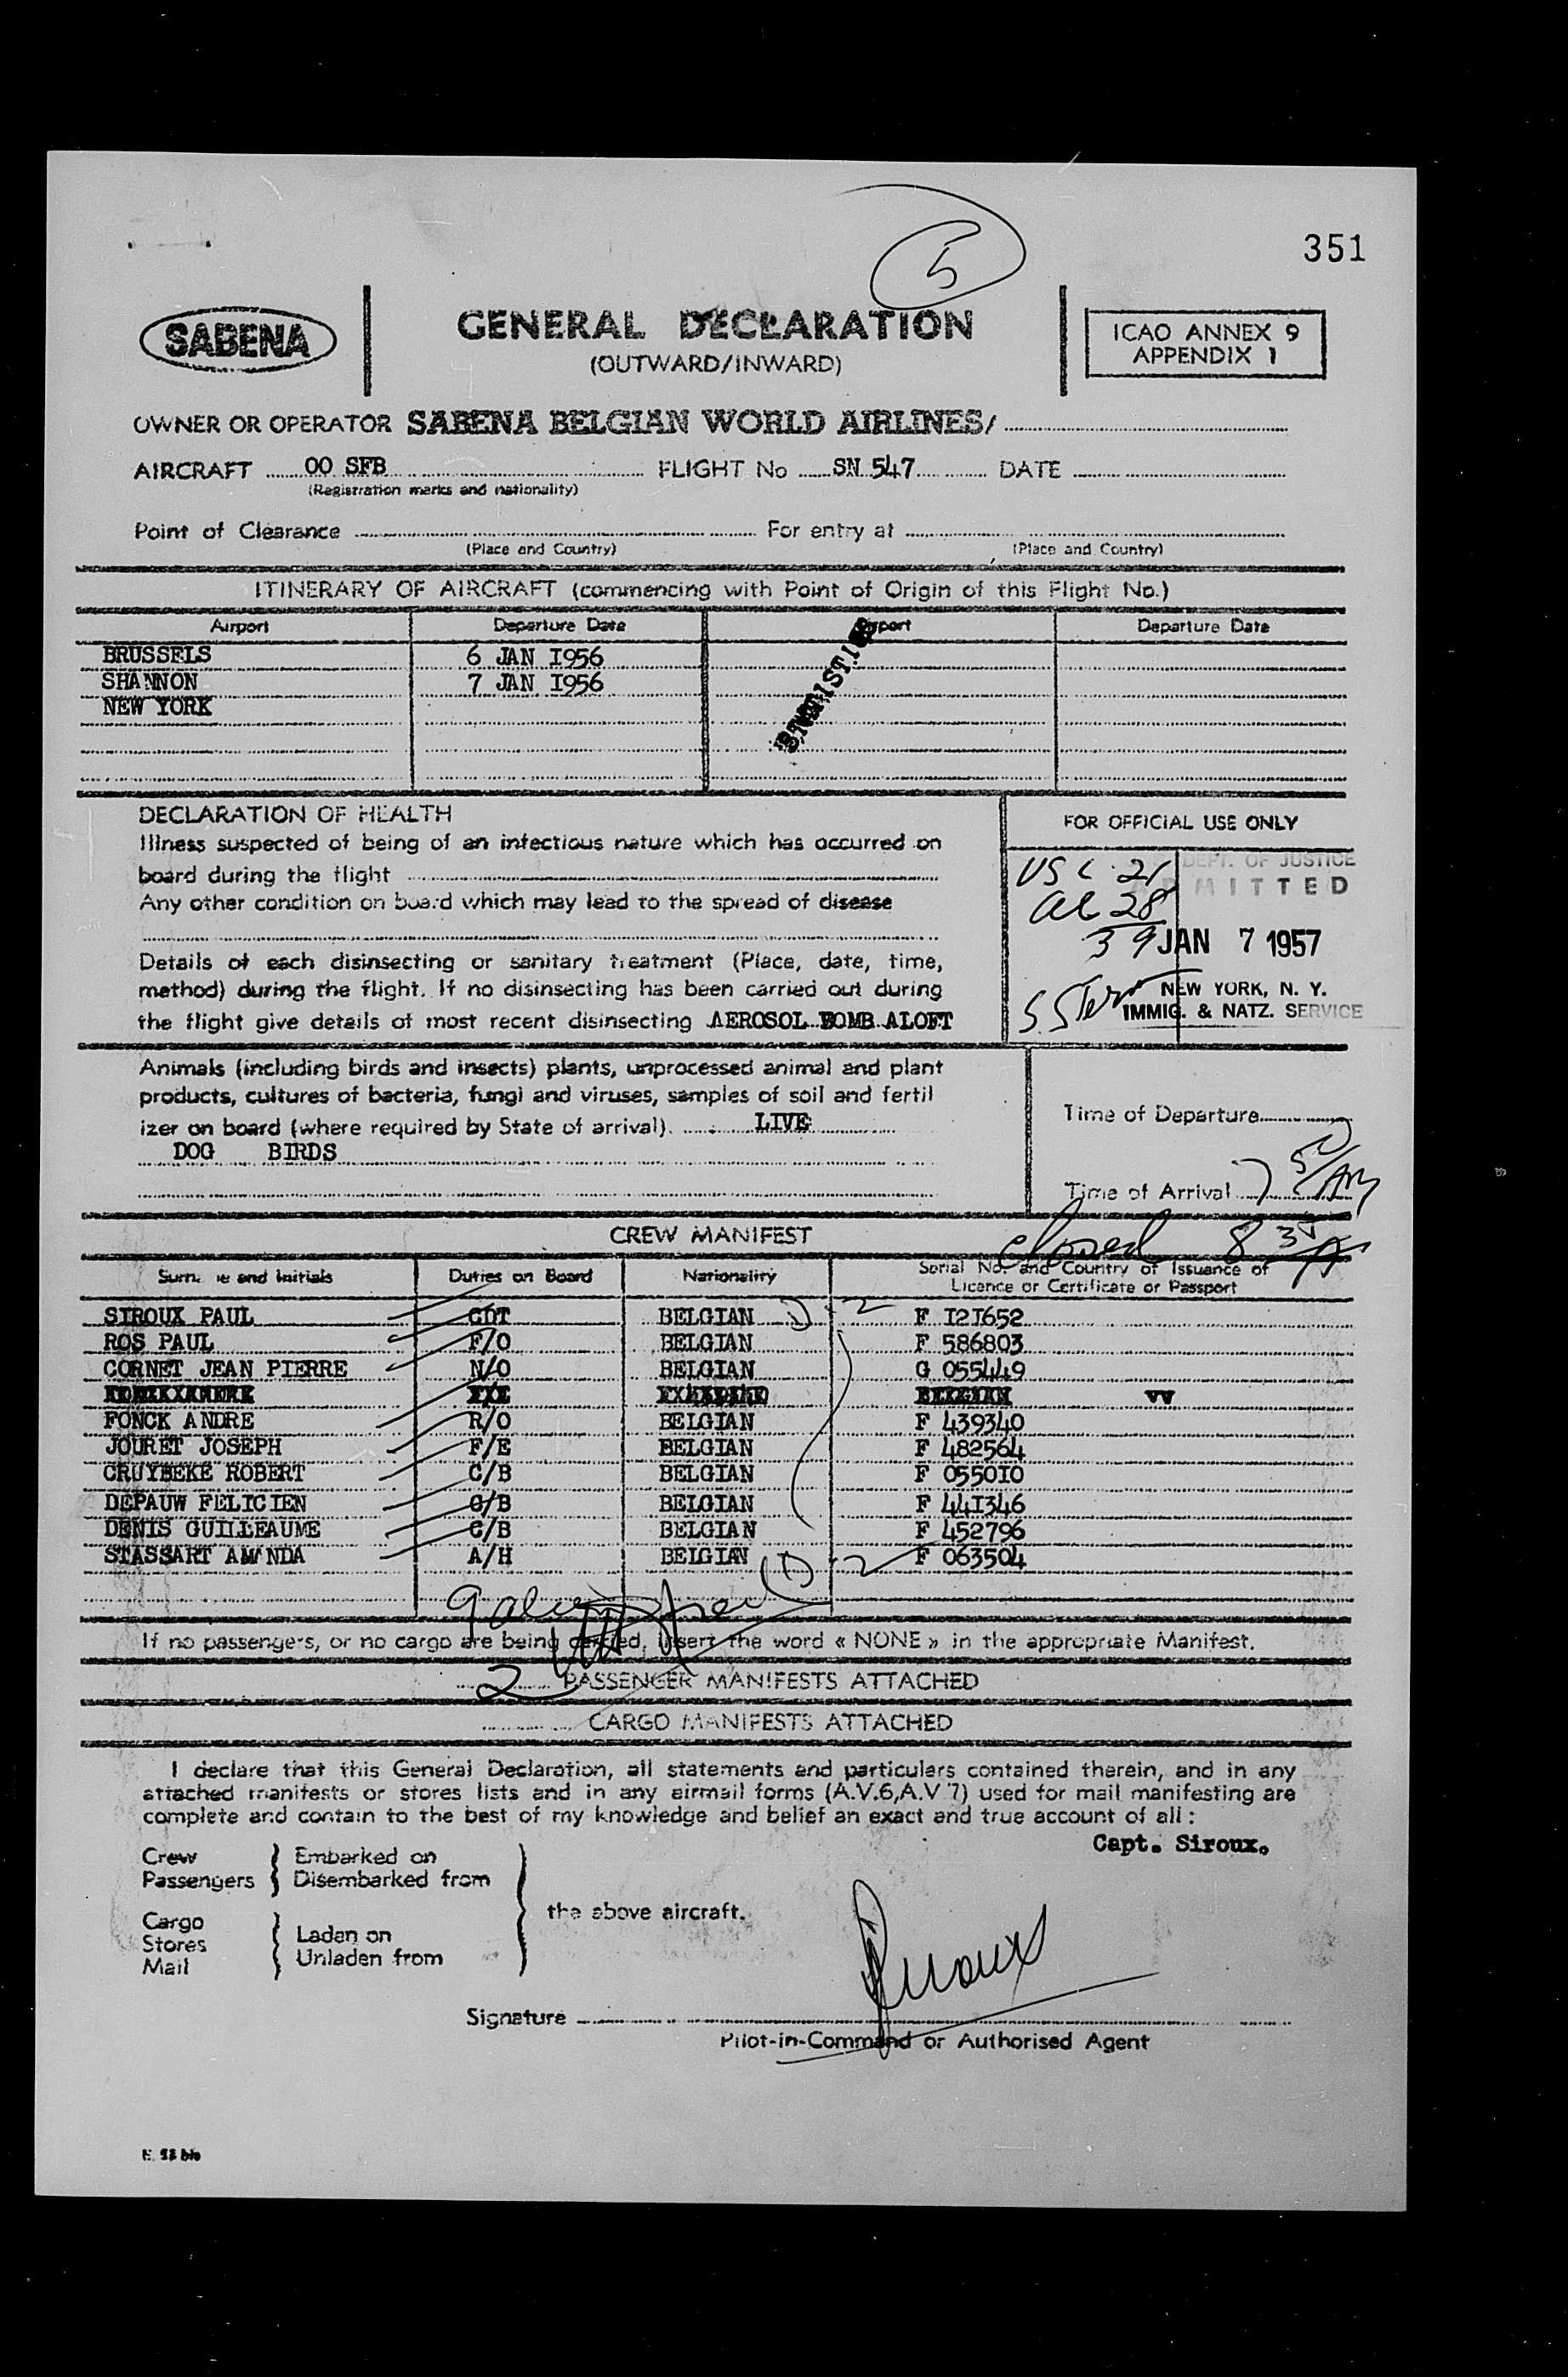 5
351
SABENA
GENERAL DECLARATION
(OUTWARD/INWARD)
ICAO ANNEX 9
APPENDIX 1
OWNER OR OPERATOR SABENA BELGIAN WORLD AIRLINES/
AIRCRAFT OO SFB FLIGHT No SN 547 DATE
(Registration marks and nationality)
Point of Clearance For entry at
(Place and Country) (Place and Country)
ITINERARY OF AIRCRAFT (commencing with Point of Origin of this Flight No.)
Airport Departure Date Airport Departure Date
BRUSSELS 6 JAN I956
SHANNON 7 JAN I956
NEW YORK
DECLARATION OF HEALTH
Illness suspected of being of an infectious nature which has occurred on
board during the flight
Any other condition on board which may lead to the spread of disease
Details of each disinsecting or sanitary treatment (Place, date, time,
method) during the flight. If no disinsecting has been carried out during
the flight give details of most recent disinsecting AEROSOL BOMB ALOFT
FOR OFFICIAL USE ONLY
DEPT. OF JUSTICE
USC 21
ADMITTED
al 28
39 JAN 7 1957
NEW YORK, N. Y.
S Stern IMMIG. & NATZ. SERVICE
Animals (including birds and insects) plants, unprocessed animal and plant
products, cultures of bacteria, fungi and viruses, samples of soil and fertil
izer on board (where required by State of arrival). LIVE
DOG BIRDS
Time of Departure
Time of Arrival 7 50/AM
closed 8 35 A
CREW MANIFEST
Surname and Initials Duties on Board Nationality Serial No. and Country of Issuance of
Licence or Certificate or Passport
SIROUX PAUL CDT BELGIAN D-2 F I2I652
ROS PAUL F/O BELGIAN F 586803
CORNET JEAN PIERRE N/O BELGIAN G 055449
FONCK ANDRE R/O BELGIAN F 439340
JOURET JOSEPH F/E BELGIAN F 482564
CRUYBEKE ROBERT C/B BELGIAN F 0550I0
DEPAUW FELICIEN C/B BELGIAN F 44I346
DENIS GUILLEAUME C/B BELGIAN F 452796
STASSART AMANDA A/H BELGIAN D-2 F 063504
If no passengers, or no cargo are being carried, insert the word « NONE » in the appropriate Manifest.
2 PASSENGER MANIFESTS ATTACHED
CARGO MANIFESTS ATTACHED
I declare that this General Declaration, all statements and particulars contained therein, and in any
attached manifests or stores lists and in any airmail forms (A.V.6,A.V 7) used for mail manifesting are
complete and contain to the best of my knowledge and belief an exact and true account of all :
Capt. Siroux.
Crew Embarked on
Passengers Disembarked from
the above aircraft.
Cargo
Stores Laden on
Mail Unladen from
Siroux
Signature
Pilot-in-Command or Authorised Agent